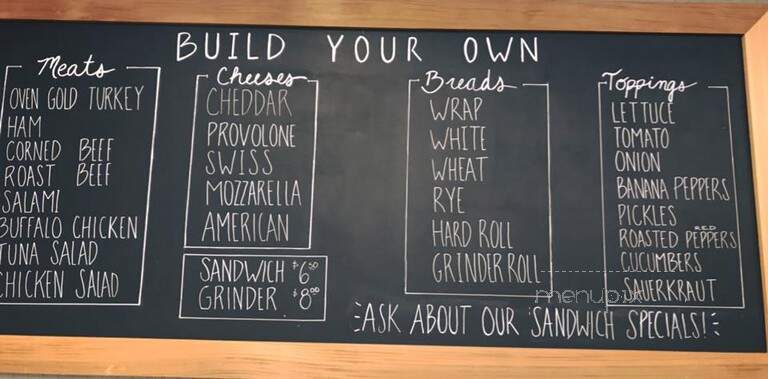 BUILD YOUR OWN
Meats
OVEN GOLD TURKEY
HAM
CORNED BEEF
ROAST BEEF
SALAMI
BUFFALO CHICKEN
TUNA SALAD
CHICKEN SALAD
Cheeses
CHEDDAR
PROVOLONE
SWISS
MOZZARELLA
AMERICAN
SANDWICH $6.50
GRINDER $8.00
Breads
WRAP
WHITE
WHEAT
RYE
HARD ROLL
GRINDER ROLL
Toppings
LETTUCE
TOMATO
ONION
BANANA PEPPERS
PICKLES
ROASTED RED PEPPERS
CUCUMBERS
SAUERKRAUT
ASK ABOUT OUR SANDWICH SPECIALS!